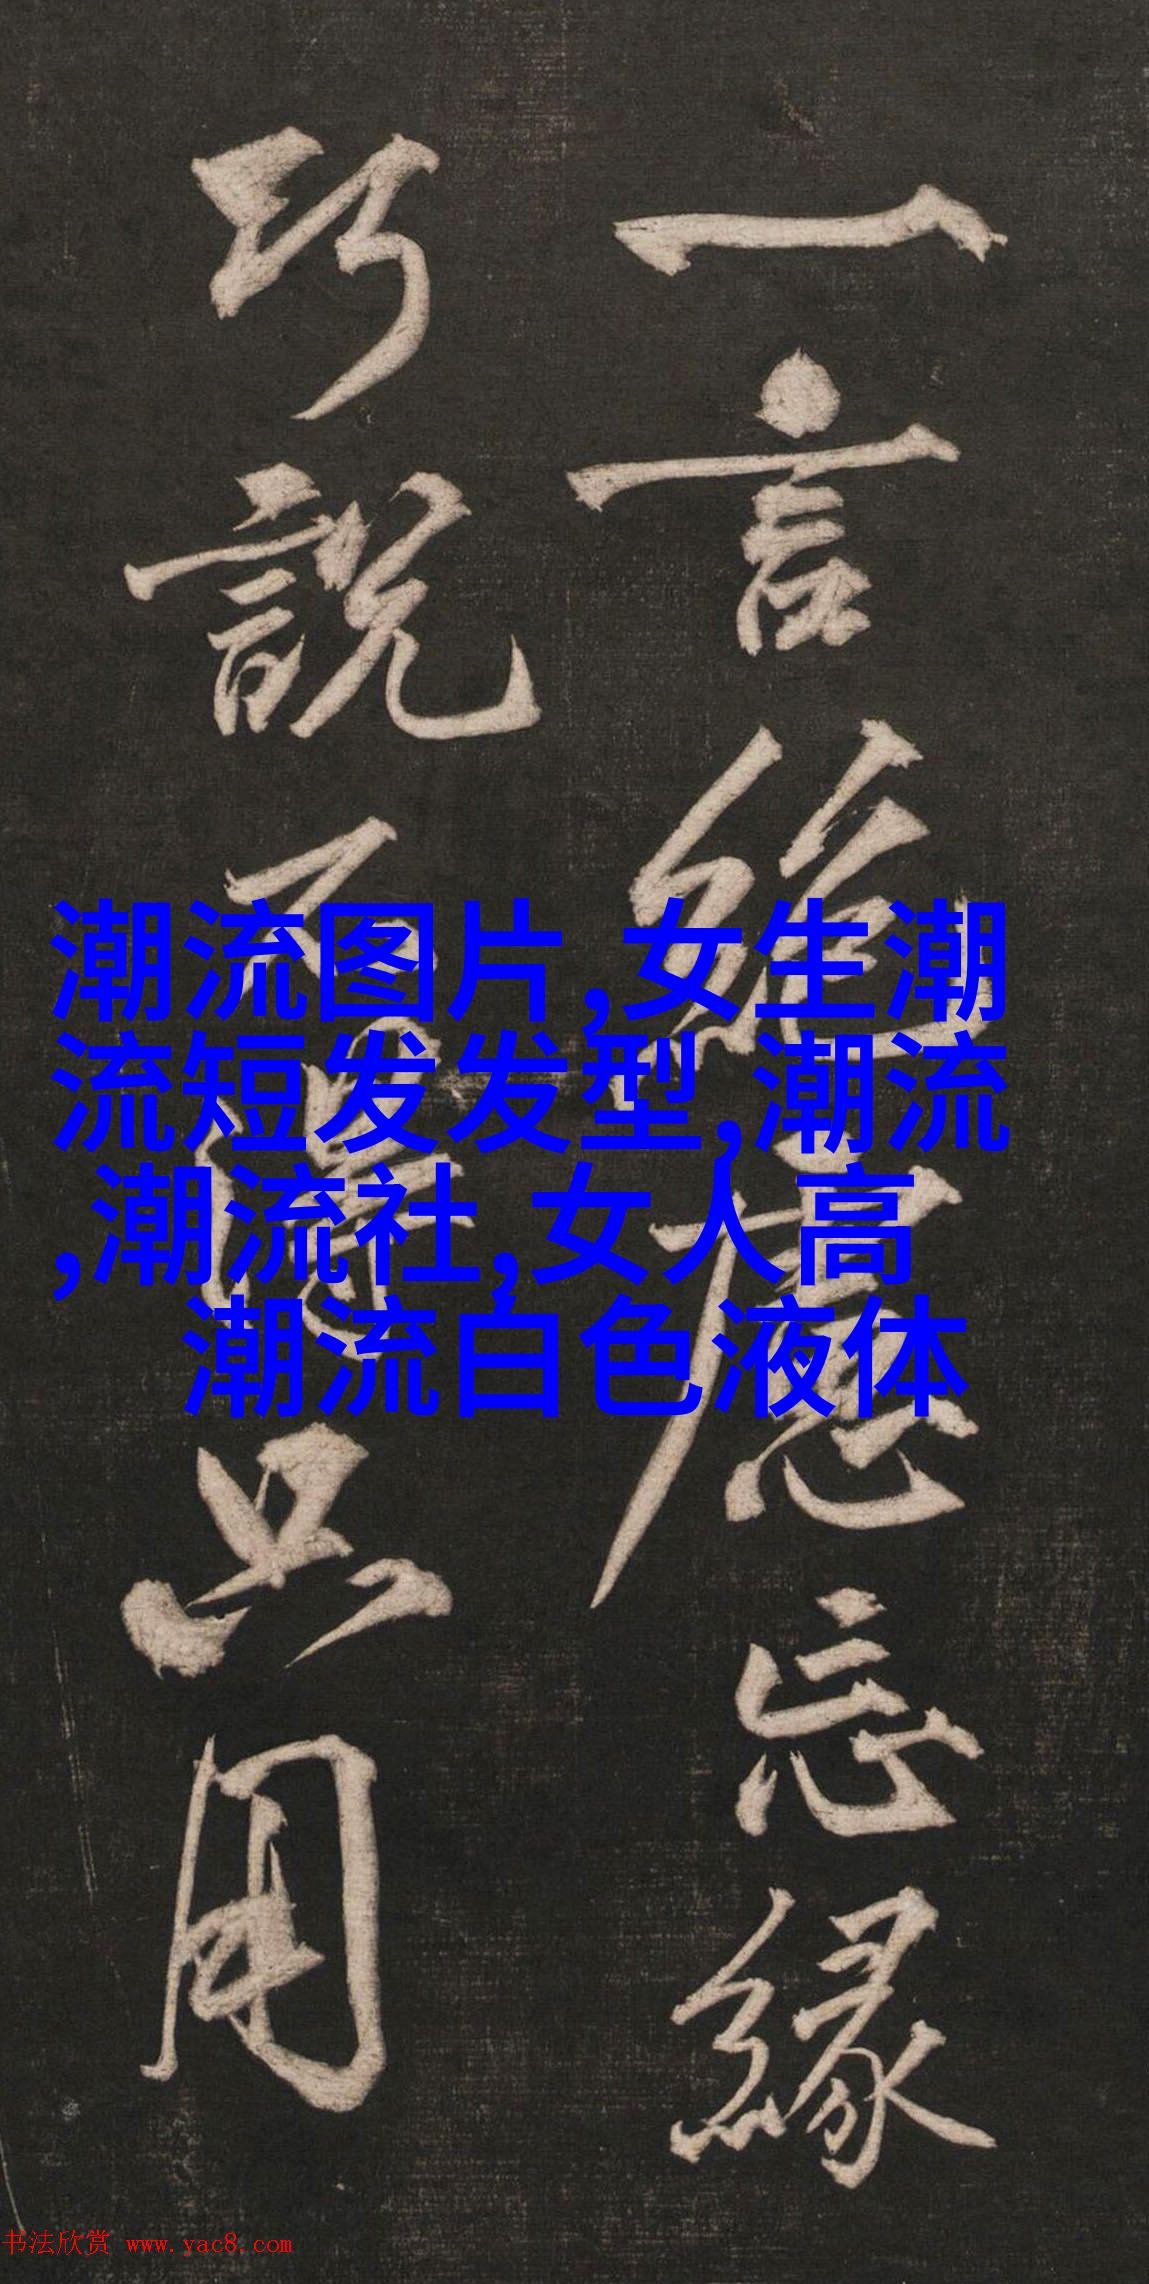 一言絕慮忘緣
巧說不得只用
潮流图片,女生潮
流短发发型,潮流
,潮流社,女人高
潮流白色液体
书法欣赏 www.yac8.com